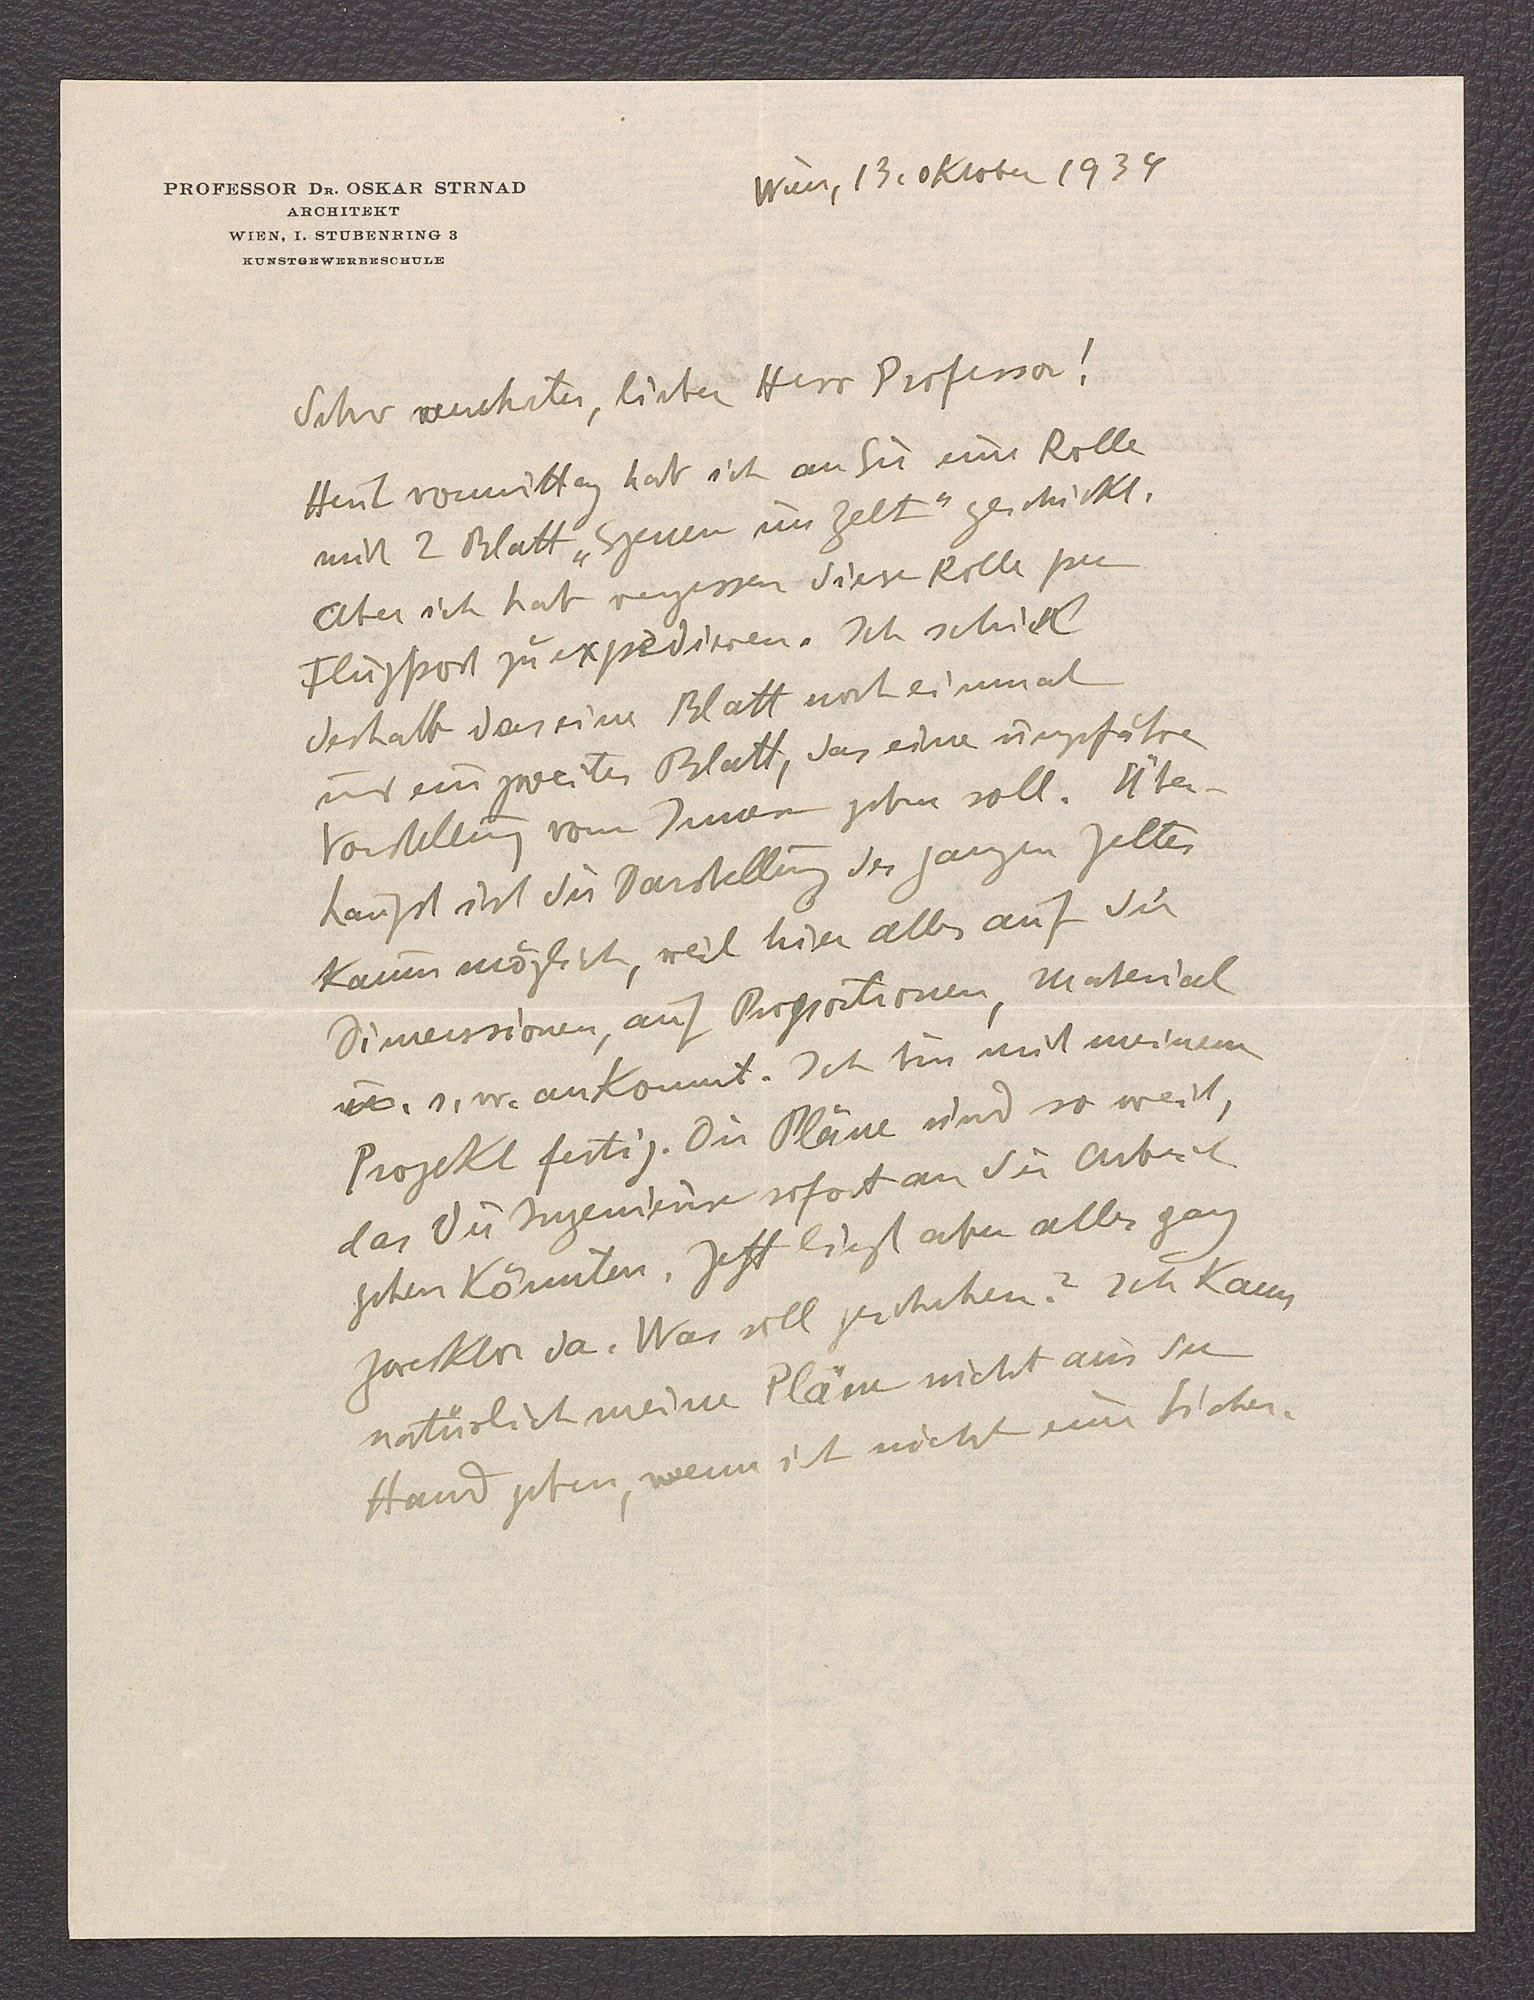 PROFESSOR DR. OSKAR STRNAD
ARCHITEKT
WIEN, I. STUBENRING 3
KUNSTGEWERBESCHULE
Wien, 13. Oktober 1934
Sehr verehrter, lieber Herr Professor!
Heut vormittag hab ich an Sie eine Rolle
mit 2 Blatt „Szenen im Zelt" geschickt.
Aber ich hab vergessen diese Rolle per
Flugpost zu expedieren. Ich schick
deshalb das eine Blatt noch einmal
und ein zweites Blatt, das eine ungefähre
Vorstellung vom Innern geben soll. Über-
haupt ist die Darstellung des ganzen Zeltes
kaum möglich, weil hier alles auf die
Dimensionen, auf Proportionen, Material
u. s. w. ankommt. Ich bin mit meinem
Projekt fertig. Die Pläne sind so weit,
das die Ingenieure sofort an die Arbeit
gehen könnten. Jetzt liegt aber alles ganz
zwecklos da. Was soll geschehen? Ich kann
natürlich meine Pläne nicht aus der
Hand geben, wenn ich nicht eine Sicher-